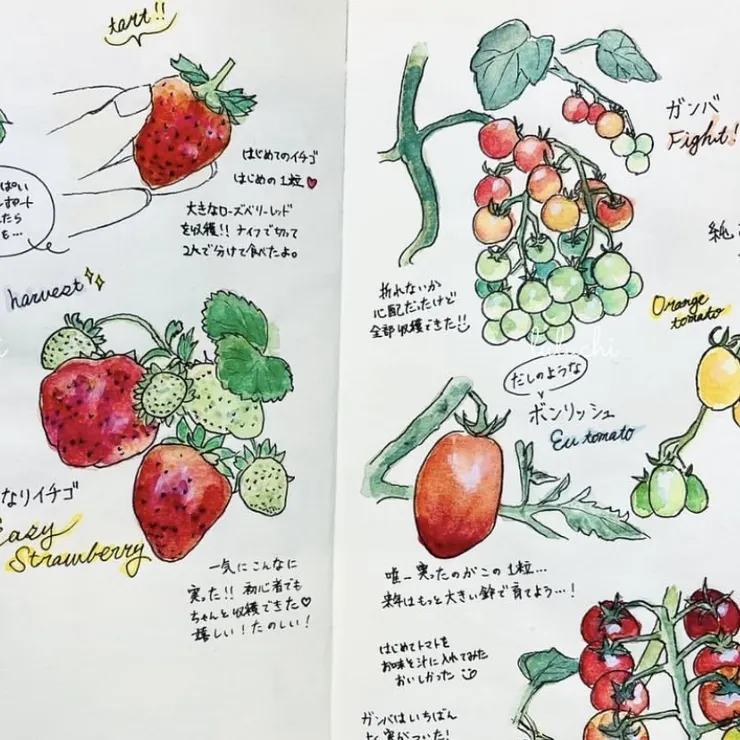 tart!!
はじめてのイチゴ
はじめの1粒
大きなローズベリーレッド
を収穫!! ナイフで切って
2人で分けて食べたよ。
ぱい
たら
を…
harvest
なりイチゴ
Easy
Strawberry
一気にこんなに
実った!! 初心者でも
ちゃんと収穫できた♡
嬉しい！たのしい！
ガンバ
Fight!
折れないか
心配だったけど
全部収穫できた!!
Orange
tomato
だしのような
ボンリッシュ
Eu tomato
唯一実ったのがこの1粒…
来年はもっと大きい鉢で育てよう…！
はじめてトマトを
お味そ汁に入れてみた
おいしかった
ガンバはいちばん
よく実がついた!